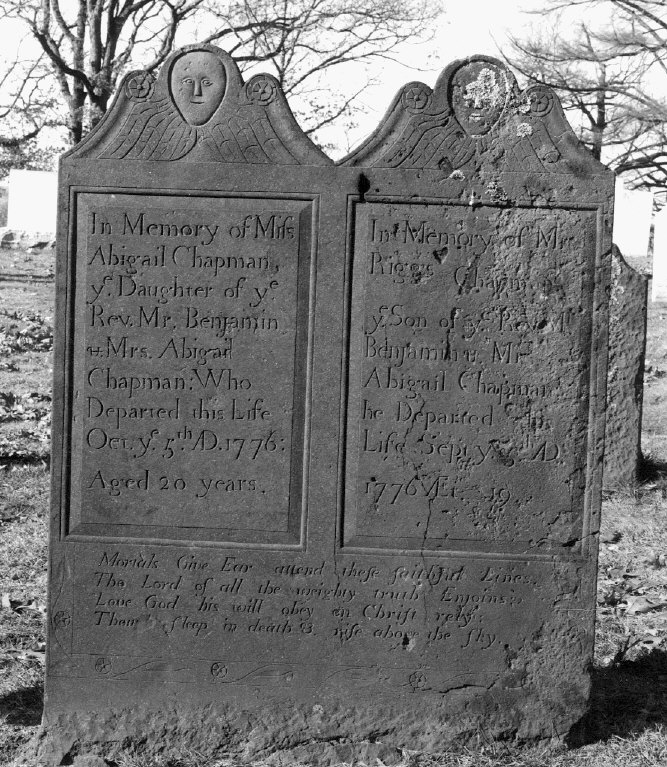 In Memory of Miſs
Abigail Chapman,
yᵉ Daughter of yᵉ
Rev. Mr. Benjamin
& Mrs. Abigail
Chapman; Who
Departed this Life
Oct. yᵉ 5th AD. 1776:
Aged 20 years.
In Memory of Mr.
Riggs Chapman
yᵉ Son of yᵉ Rev. Mr.
Benjamin & Mrs.
Abigail Chapman
he Departed this
Life Sept. yᵉ AD.
1776 Æt. 19.
Mortals Give Ear attend theſe faithful Lines.
The Lord of all the weighty truth Enjoins:
Love God his will obey on Chriſt rely:
Then ſleep in death & riſe above the ſky.